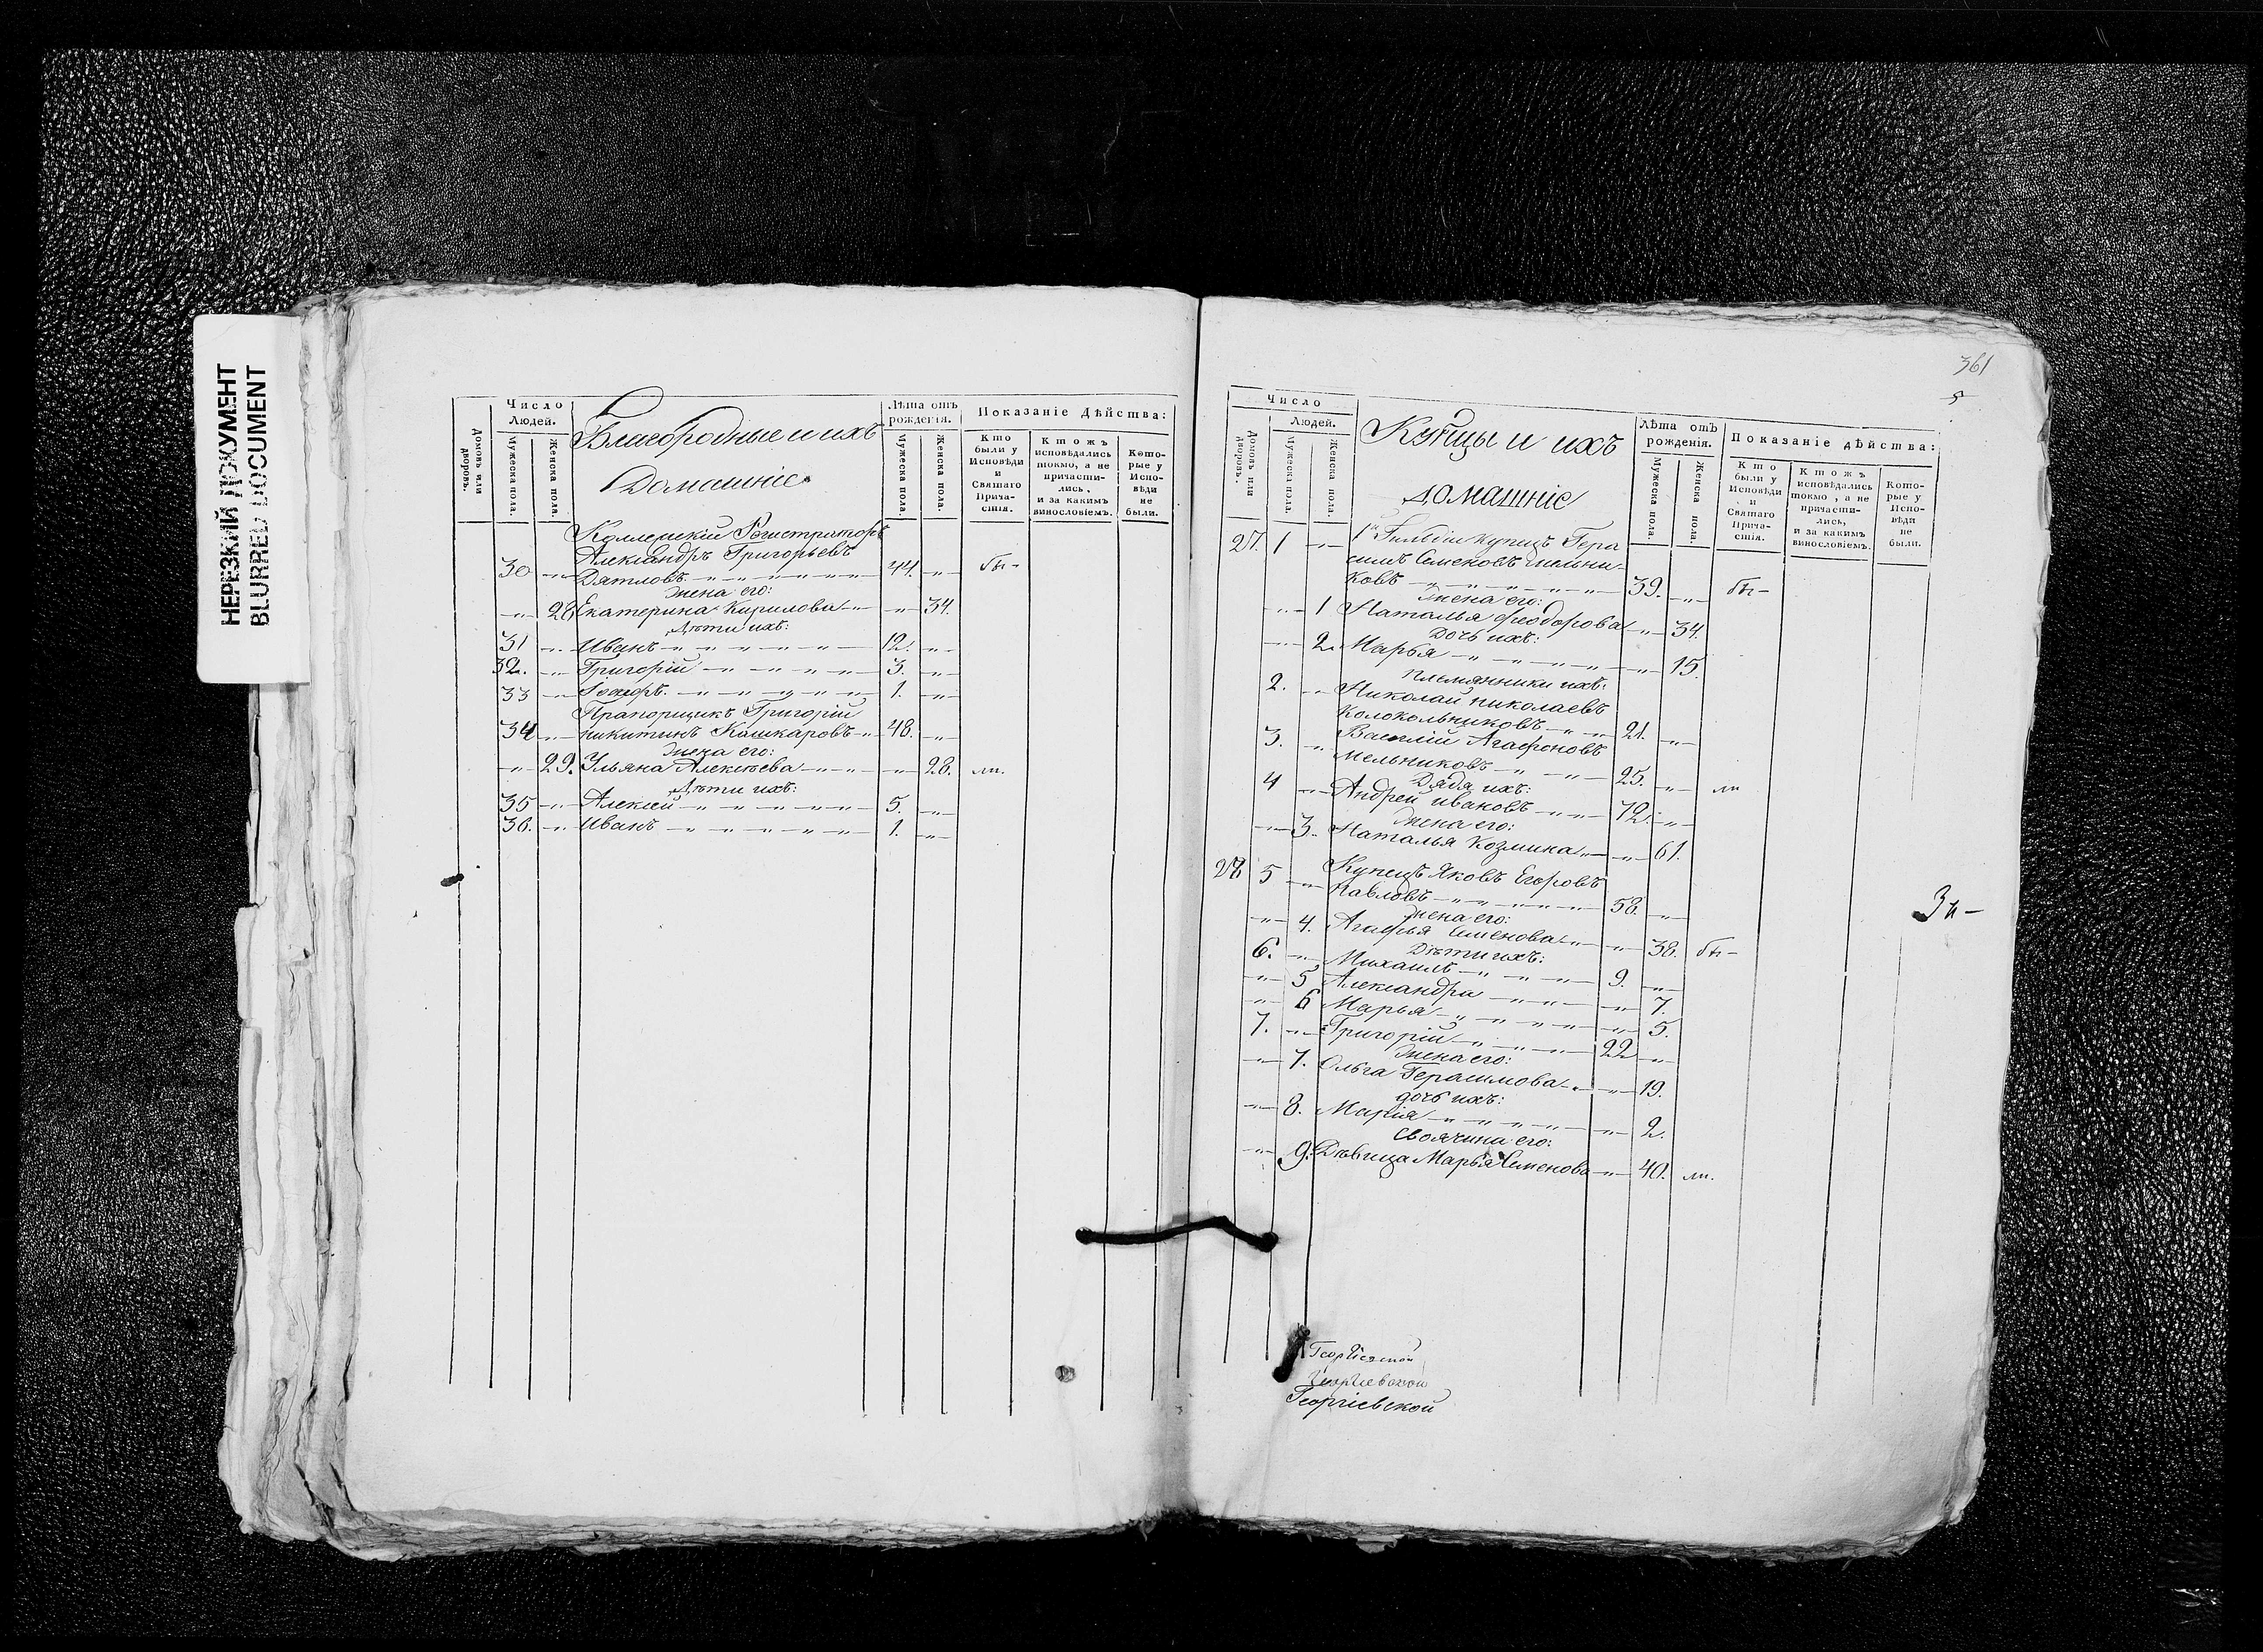 НЕРЕЗКИЙ ДОКУМЕНТ
BLURRED DOCUMENT
Домовъ или дворовъ.
Число Людей.
Мужеска пола.
Женска пола.
Благородные и ихъ
Домашніе
Лѣта отъ рожденія.
Мужеска пола.
Женска пола.
Показаніе Дѣйства:
Кто были у Исповѣди и Святаго Прича-стія.
Ктожъ исповѣдались токмо, а не причасти-лись, и за какимъ винословіемъ.
Кото-рые у Испо-вѣди не были.
Коллежскій Регистраторъ
Александръ Григорьевъ
30 -"- Дятловъ -"-"-"-"-"- 44. -"- бы-
Жена его:
-"- 28 Екатерина Кирилова -"- -"- 34.
Дѣти ихъ:
31 -"- Иванъ -"-"-"-"-"- 12. -"-
32. -"- Григорій -"-"-"-"- 3. -"-
33 -"- -"-"-"-"-"- 1. -"-
Прапорщикъ Григорій
34 -"- Никитинъ Кашкаровъ -"- 48. -"-
Жена его:
-"- 29. Ульяна Алексѣева -"-"- -"- 28. ли.
Дѣти ихъ:
35 -"- Алексѣй -"-"-"-"-"- 5. -"-
36. -"- Иванъ -"-"-"-"-"- 1. -"-
361
Число Людей.
Домовъ или дворовъ.
Мужеска пола.
Женска пола.
Купцы и ихъ
домашніе
Лѣта отъ рожденія.
Мужеска пола.
Женска пола.
Показаніе дѣйства:
Кто были у Исповѣди и Святаго Прича-стія.
Ктожъ исповѣдались токмо, а не причасти-лись, и за какимъ винословіемъ.
Кото-рые у Испо-вѣди не были.
27. 1 -"- 1й Гильдіи купецъ Гера
симъ Семеновъ Мельни-
ковъ -"-"-"-"-"- 39. -"- бы-
Жена его:
-"- 1 Наталья Феодорова -"- 34.
Дочь ихъ:
-"- 2. Марья -"-"-"-"-"- 15.
Племянники ихъ:
2. -"- Николай Николаевъ
Колокольниковъ -"-"- 21. -"-
3. -"- Василій Агафоновъ
Мельниковъ -"- -"- 25. -"- ли
Дядя ихъ:
4 -"- Андрей Ивановъ -"-"- 72. -"-
Жена его:
-"- 3. Наталья Козмина -"- -"- 61.
28 5 -"- Купецъ Яковъ Егоровъ
Павловъ -"-"-"-"- 58. -"-
Жена его:
-"- 4. Агафья Семенова -"- -"- 38. бы-
Дѣти ихъ:
6. -"- Михаилъ -"-"-"- 9. -"-
-"- 5 Александра -"-"- -"- 7.
-"- 6 Марья -"-"-"-"- -"- 5.
7. -"- Григорій -"-"-"- 22 -"-
Жена его:
-"- 7. Ольга Герасимова -"- -"- 19.
дочь ихъ:
-"- 8. Марія -"-"-"-"- -"- 2.
Своячина его:
-"- 9. Дѣвица Марья Семенова -"- 40. ли.
Георгіевской
Георгіевской